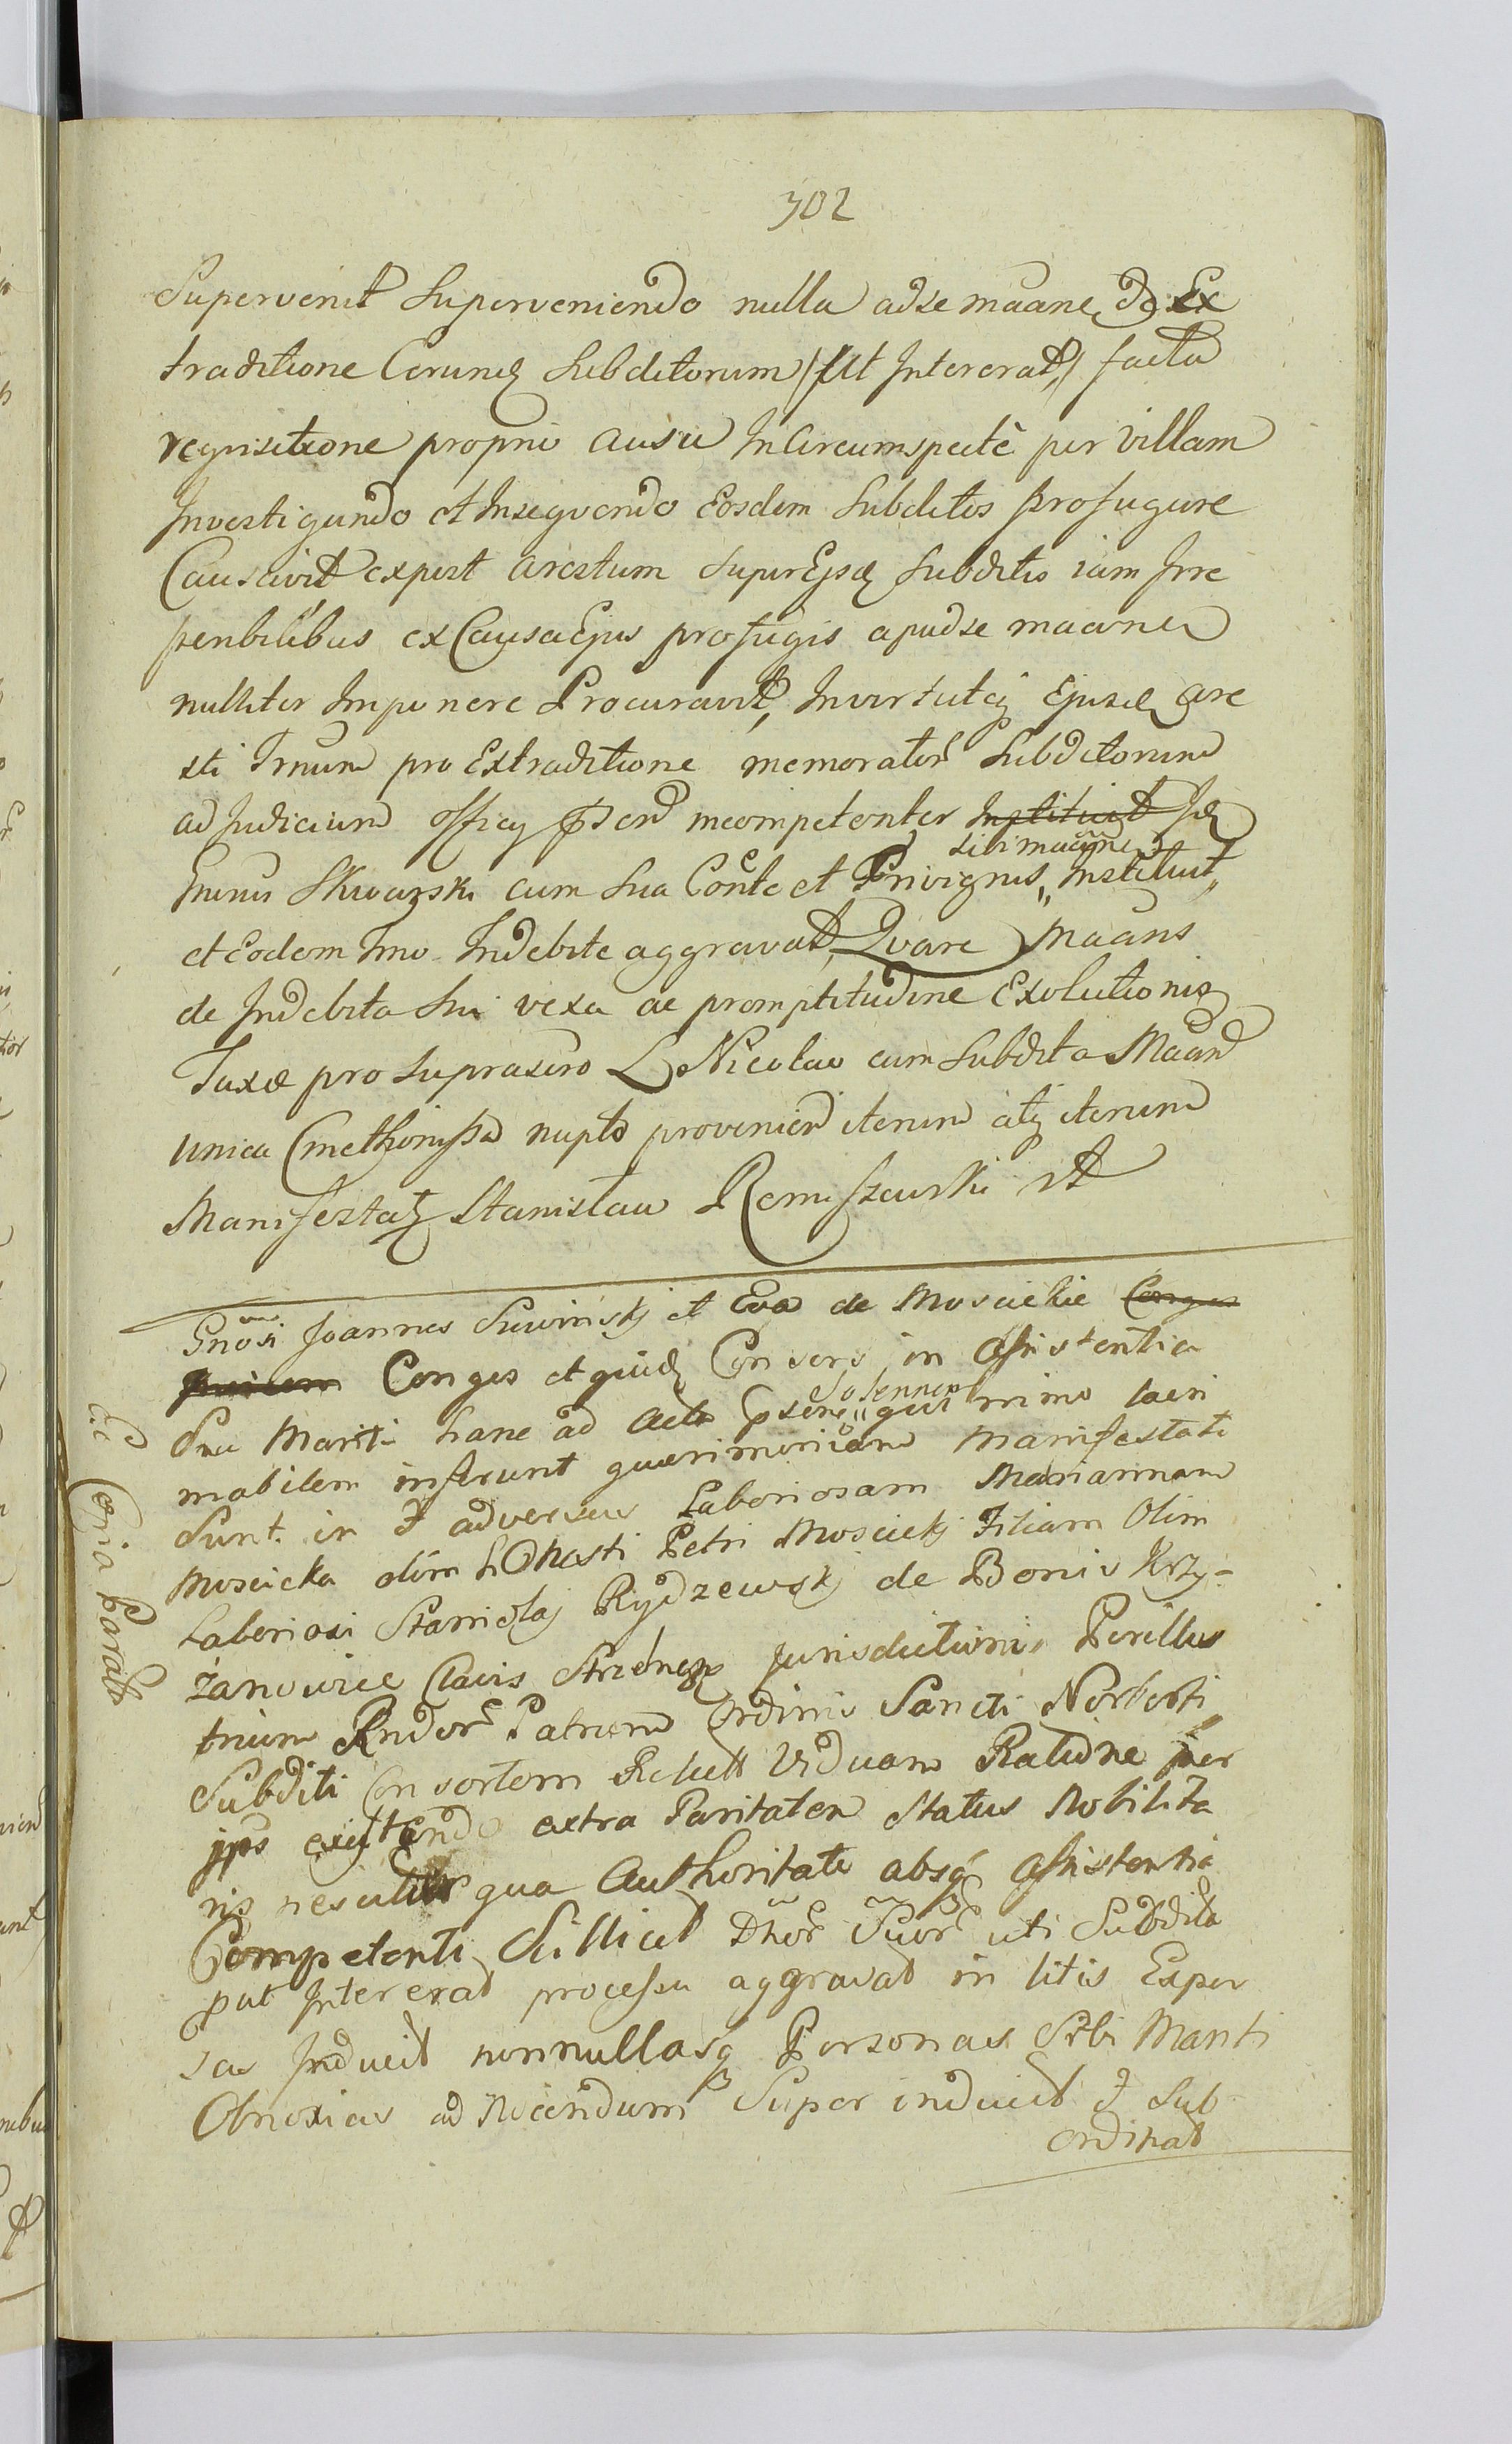 302
Supervenit Superveniendo nulla adse maane de Ex
traditione Eorund Subditorum /Ut Intererat/ facta
requisitione proprio ausu Incircumspectè per villam
Investigando et Insequendo Eosdem Subditos profugere
Causavit expost arestum super Ejsd Subditis iam Irre
penbilibus ex Causa Ejus profugis apud se maane
nulliter Imponere Procuravit, Invirtuteq Ejusd are
sti Trnum pro Extraditione memorator Subditorum
ad Judicium officy incompetenter Instituit Id
sibi maane
Gnsus Skwarski cum Sua Conte et Privignis,, Instituit,,
et Eodem Tmo Indebite aggravat, Qvare Maans
de Indebita Sui vexa ac promptitudine Exolutionis
Taxæ pro suprascro L Nicolao cum Subdita Maan
unica Cmethonissa nupto provenien iterum atq iterum
Manifestat Stanisław Remiszewski
Gnosi Joannes Suwinskj et Eva de Moscickie Conges
Conges et quid Consors in assistentia
Sui Mariti hanc ad Acta psens
Solennem
,, qui nimo lacri
mabilem inferunt querimoniam manifestati
Sunt. in & adversus Laboriosam Mariannam
Moscicka olim Honesti Petri Moscickj Filiam Olim
Laboriosi Stanislaj Rydzewskj de Bonis Krzy-
żanowice Clavis Jurisdictionis Perillus
trium Rndor Patrum Ordinis Sancti Norberti
Subditi Consortem Relictt Viduam Ratione per
ips existendo extra Paritatem Status Nobilita
ris nescitur qua Authoritate absq Assistentia
Competenti Scillicet Dnor Suor uti Subdita
put Intererat processu aggravat in litis Expen
sas Inducit nonnullasq Personas Sibi Manti
Obnoxias ad Nocendum Super inducit & Sub
ordinat
Copia Parata